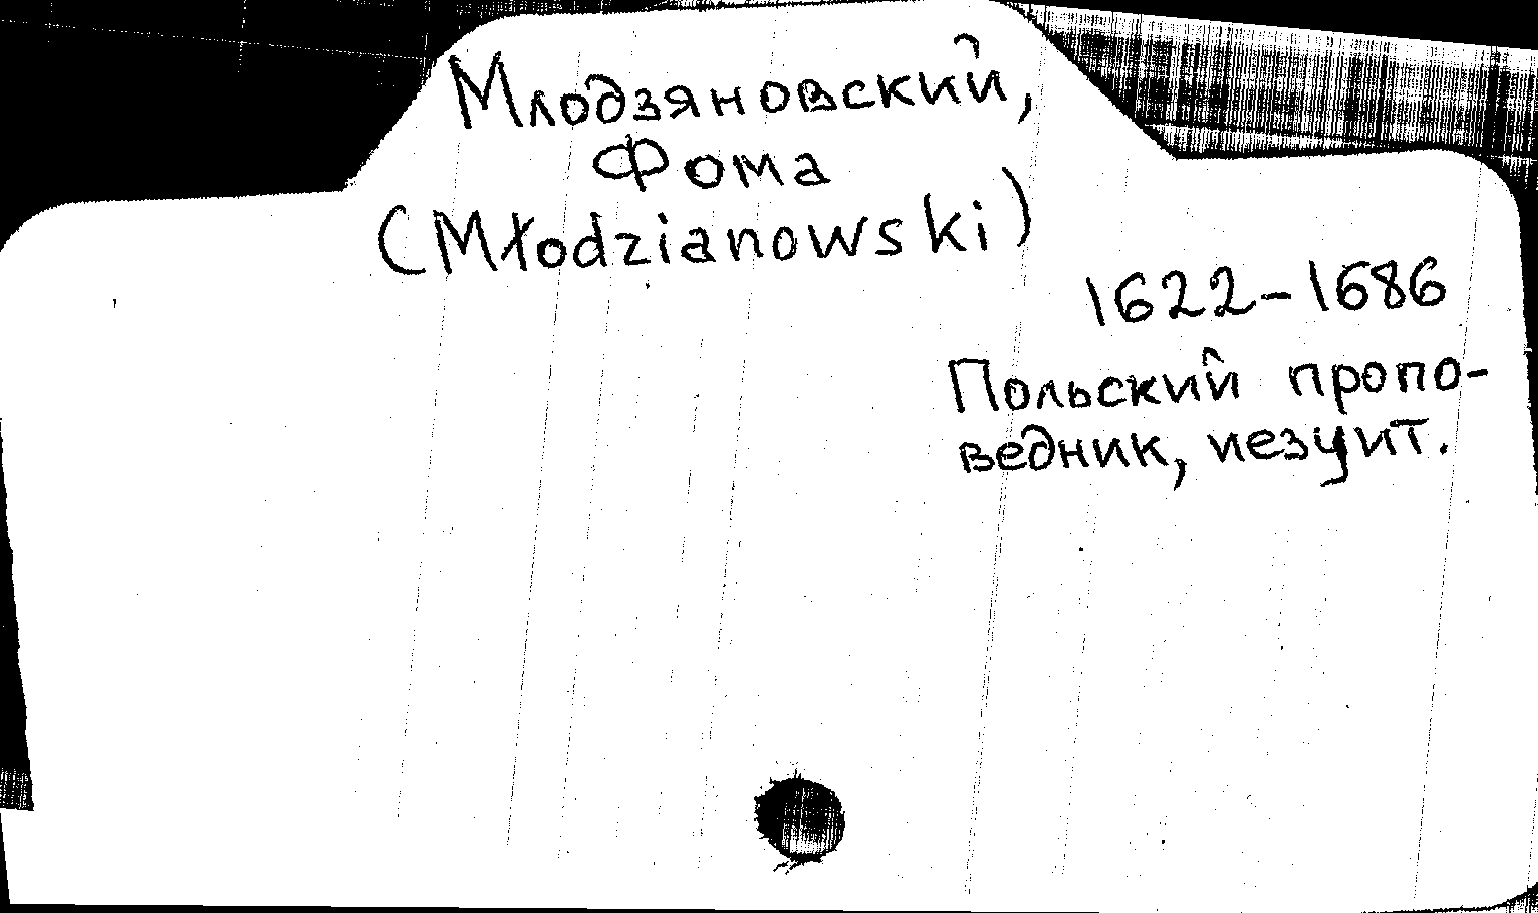 Млодзяновский,
Фома
(Młodzianowski)
1622-1686
Польский пропо-
ведник, иезуит.